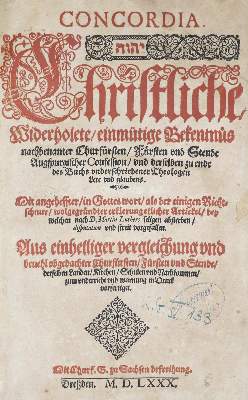 CONCORDIA.
יהוה
Christliche,
Widerholete, einmütige Bekentnüs
nachbenanter Churfürsten, Fürsten vnd Stende
Augspurgischer Confession, vnd derselben zu ende
des Buchs vnderschriebener Theologen
Lere vnd glaubens.
Mit angeheffter, in Gottes wort, als der einigen Richt-
schnur, wolgegründter erklerung etlicher Artickel, bey
welchen nach D. Martin Luthers seligen absterben,
disputation vnd streit vorgefallen.
Aus einhelliger vergleichung vnd
beuehl obgedachter Churfürsten, Fürsten vnd Stende,
derselben Landen, Kirchen, Schulen vnd Nachkommen,
zum vnderricht vnd warnung in Druck
vorfertiget.
Mit Churf. G. zu Sachsen befreihung.
Dreßden. M. D. LXXX.